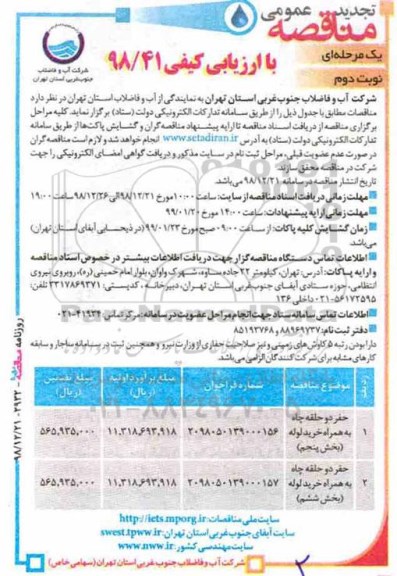 تجدید مناقصه عمومی
یک مرحله‌ای
با ارزیابی کیفی ۹۸/۴۱
نوبت دوم
شرکت آب و فاضلاب
جنوب‌غربی استان تهران
شرکت آب و فاضلاب جنوب غربی استان تهران به نمایندگی از آب و فاضلاب استان تهران در نظر دارد
مناقصات مطابق با جدول ذیل را از طریق سامانه تدارکات الکترونیکی دولت (ستاد) برگزار نماید. کلیه مراحل
برگزاری مناقصه از دریافت اسناد مناقصه تا ارایه پیشنهاد مناقصه‌گران و گشایش پاکت‌ها از طریق سامانه
تدارکات الکترونیکی دولت (ستاد) به آدرس www.setadiran.ir انجام خواهد شد و لازم است مناقصه گران
در صورت عدم عضویت قبلی، مراحل ثبت نام در سایت مذکور و دریافت گواهی امضای الکترونیکی را جهت
شرکت در مناقصه محقق سازند.
تاریخ انتشار مناقصه در سامانه ۹۸/۱۲/۲۱ می‌باشد.
مهلت زمانی دریافت اسناد مناقصه از سایت: ساعت ۱۰:۰۰ مورخ ۹۸/۱۲/۲۱ الی ۹۸/۱۲/۲۶ ساعت ۱۹:۰۰
مهلت زمانی ارایه پیشنهادات: ساعت ۱۴:۰۰ مورخ ۹۹/۰۱/۲۰
زمان گشایش کلیه پاکات: از ساعت ۰۹:۰۰ صبح مورخ ۹۹/۰۱/۲۳ (در ذیحسابی آبفای استان تهران)
می‌باشد.
اطلاعات تماس دستگاه مناقصه گزار جهت دریافت اطلاعات بیشتر در خصوص اسناد مناقصه
و ارایه پاکات: آدرس: تهران، کیلومتر ۲۲ جاده ساوه، شهرک واوان، بلوار امام خمینی (ره)، روبروی نیروی
انتظامی، حوزه ستادی آبفای جنوب‌غربی استان تهران، دبیرخانه، کدپستی: ۳۳۱۷۸۶۹۳۷۱ تلفن:
۰۲۱-۵۶۱۷۲۵۹۵ داخلی ۱۳۶
اطلاعات تماس سامانه ستاد جهت انجام مراحل عضویت در سامانه: مرکز تماس ۴۱۹۳۴-۰۲۱
دفتر ثبت نام: ۸۸۹۶۹۷۳۷ و ۸۵۱۹۳۷۶۸
دارا بودن رتبه ۵ کاوش‌های زمینی و نیز صلاحیت حفاری از وزارت نیرو و همچنین ثبت در سامانه ساجار و سابقه
کارهای مشابه برای شرکت کنندگان الزامی می‌باشد.
ردیف موضوع مناقصه شماره فراخوان مبلغ برآورد اولیه (ریال) مبلغ تضمین (ریال)
۱ حفر دو حلقه چاه به همراه خرید لوله (بخش پنجم) ۲۰۹۸۰۵۰۱۳۹۰۰۰۱۵۶ ۱۱,۳۱۸,۶۹۳,۹۱۸ ۵۶۵,۹۳۵,۰۰۰
۲ حفر دو حلقه چاه به همراه خرید لوله (بخش ششم) ۲۰۹۸۰۵۰۱۳۹۰۰۰۱۵۷ ۱۱,۳۱۸,۶۹۳,۹۱۸ ۵۶۵,۹۳۵,۰۰۰
سایت ملی مناقصات: http://iets.mporg.ir
سایت آبفای جنوب غربی استان تهران: swest.tpww.ir
سایت مهندسی کشور: www.nww.ir
شرکت آب و فاضلاب جنوب غربی استان تهران (سهامی خاص)
روزنامه مناقصه ۲۹۳۲ - ۹۸/۱۲/۲۱
۲